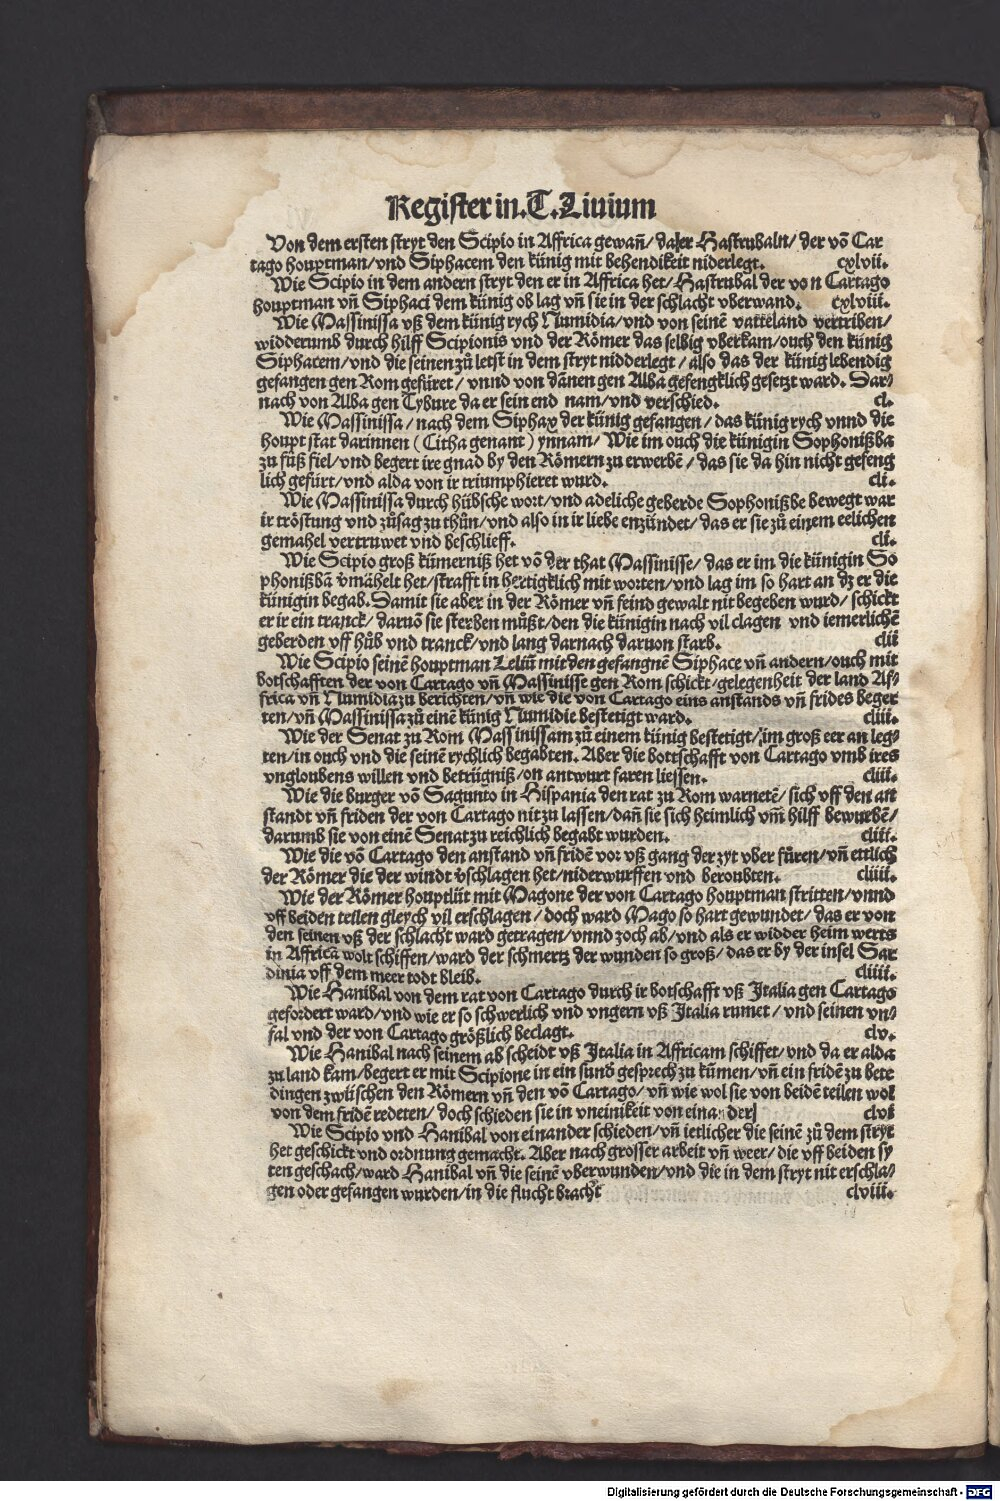 Register in.T.Liuium
Von dem ersten stryt den Scipio in Affrica gewañ/ da er Hastrubaln/ der võ Car
tago houptman/vnd Siphacem den künig mit behendikeit niderlegt. cxlvii.
Wie Scipio in dem andern stryt den er in Affrica het/Hastrubal der von Cartago
houptman vñ Siphaci dem künig ob lag vñ sie in der schlacht vberwand. cxlviii.
Wie Massinissa vß dem künig rych Numidia/vnd von seinē vatteland vertriben/
widderumb durch hilff Scipionis vnd der Römer das selbig vberkam/ouch den künig
Siphacem/vnd die seinen zů letst in dem stryt nidderlegt/ also das der künig lebendig
gefangen gen Rom gefüret/ vnnd von dānen gen Alba gefengklich gesetzt ward. Dar⸗
nach von Alba gen Tybure da er sein end nam/vnd verschied. cl.
Wie Massinissa/ nach dem Siphax der künig gefangen/ das künig rych vnnd die
houpt stat darinnen (Citha genant) ynnam/ Wie im ouch die künigin Sophonißba
zu füß fiel/vnd begert ire gnad by den Römern zu erwerbē/ das sie da hin nicht gefeng
lich gefürt/vnd alda von ir triumphieret wurd. cli.
Wie Massinissa durch hübsche wort/vnd adeliche geberde Sophonißbe bewegt war
ir tröstung vnd zůsag zu thůn/vnd also in ir liebe enzündet/das er sie zů einem eelichen
gemahel vertruwet vnd beschlieff. cli.
Wie Scipio groß kümerniß het võ der that Massinisse/ das er im die künigin So
phonißbā v̄mähelt het/strafft in hertigklich mit worten/vnd lag im so hart an dz er die
künigin begab. Damit sie aber in der Römer vñ feind gewalt nit begeben wurd/ schickt
er ir ein tranck/ daruõ sie sterben můßt/den die künigin nach vil clagen vnd iemerlichē
geberden vff hůb vnd tranck/vnd lang darnach daruon starb. clii
Wie Scipio seinē houptman Leliū mit den gefangnē Siphace vñ andern/ouch mit
botschafften der von Cartago vñ Massinisse gen Rom schickt/gelegenheit der land Af⸗
frica vñ Numidia zu berichten/vñ wie die von Cartago eins anstands vñ frides beger
ten/vñ Massinissa zů einē künig Numidie bestetigt ward. cliii.
Wie der Senat zu Rom Massinissam zů einem künig bestetigt/im groß eer an leg⸗
ten/in ouch vnd die seinē rychlich begabten. Aber die bottschafft von Cartago vmb ires
vngloubens willen vnd betrügniß/on antwurt faren liessen. cliii.
Wie die burger võ Sagunto in Hispania den rat zu Rom warnetē/ sich vff den an
standt vñ friden der von Cartago nit zu lassen/dañ sie sich heimlich vm̄ hilff bewurbē/
darumb sie von einē Senat zu reichlich begabt wurden. cliii.
Wie die võ Cartago den anstand vñ fridē vor vß gang der zyt vber fůren/vñ ettlich
der Römer die der windt v̄schlagen het/niderwurffen vnd beroubten. cliiii.
Wie der Römer houptlüt mit Magone der von Cartago houptman stritten/vnnd
vff beiden teilen gleych vil erschlagen/doch ward Mago so hart gewundet/das er von
den seinen vß der schlacht ward getragen/vnnd zoch ab/vnd als er widder heim werts
in Affrica wolt schiffen/ward der schmertz der wunden so groß/das er by der insel Sar
dinia vff dem meer todt bleib. cliiii.
Wie Hanibal von dem rat von Cartago durch ir botschafft vß Italia gen Cartago
gefordert ward/vnd wie er so schwerlich vnd vngern vß Italia rumet/ vnd seinen vn⸗
fal vnd der von Cartago größlich beclagt. clv.
Wie Hanibal nach seinem ab scheidt vß Italia in Affricam schiffet/vnd da er alda
zu land kam/begert er mit Scipione in ein sund gesprech zu kümen/vñ ein fridē zu bete
dingen zwüschen den Römern vñ den võ Cartago/ vñ wie wol sie von beidē teilen wol
von dem fridē redeten/ doch schieden sie in vneinikeit von einander clvi
Wie Scipio vnd Hanibal von einander schieden/vñ ietlicher die seinē zů dem stryt
het geschickt vnd ordnung gemacht. Aber nach grosser arbeit vñ weer/ die vff beiden sy
ten geschach/ward Hanibal vñ die seinē vberwunden/vnd die in dem stryt nit erschla⸗
gen oder gefangen wurden/in die flucht bracht clviii.
Digitalisierung gefördert durch die Deutsche Forschungsgemeinschaft - DFG